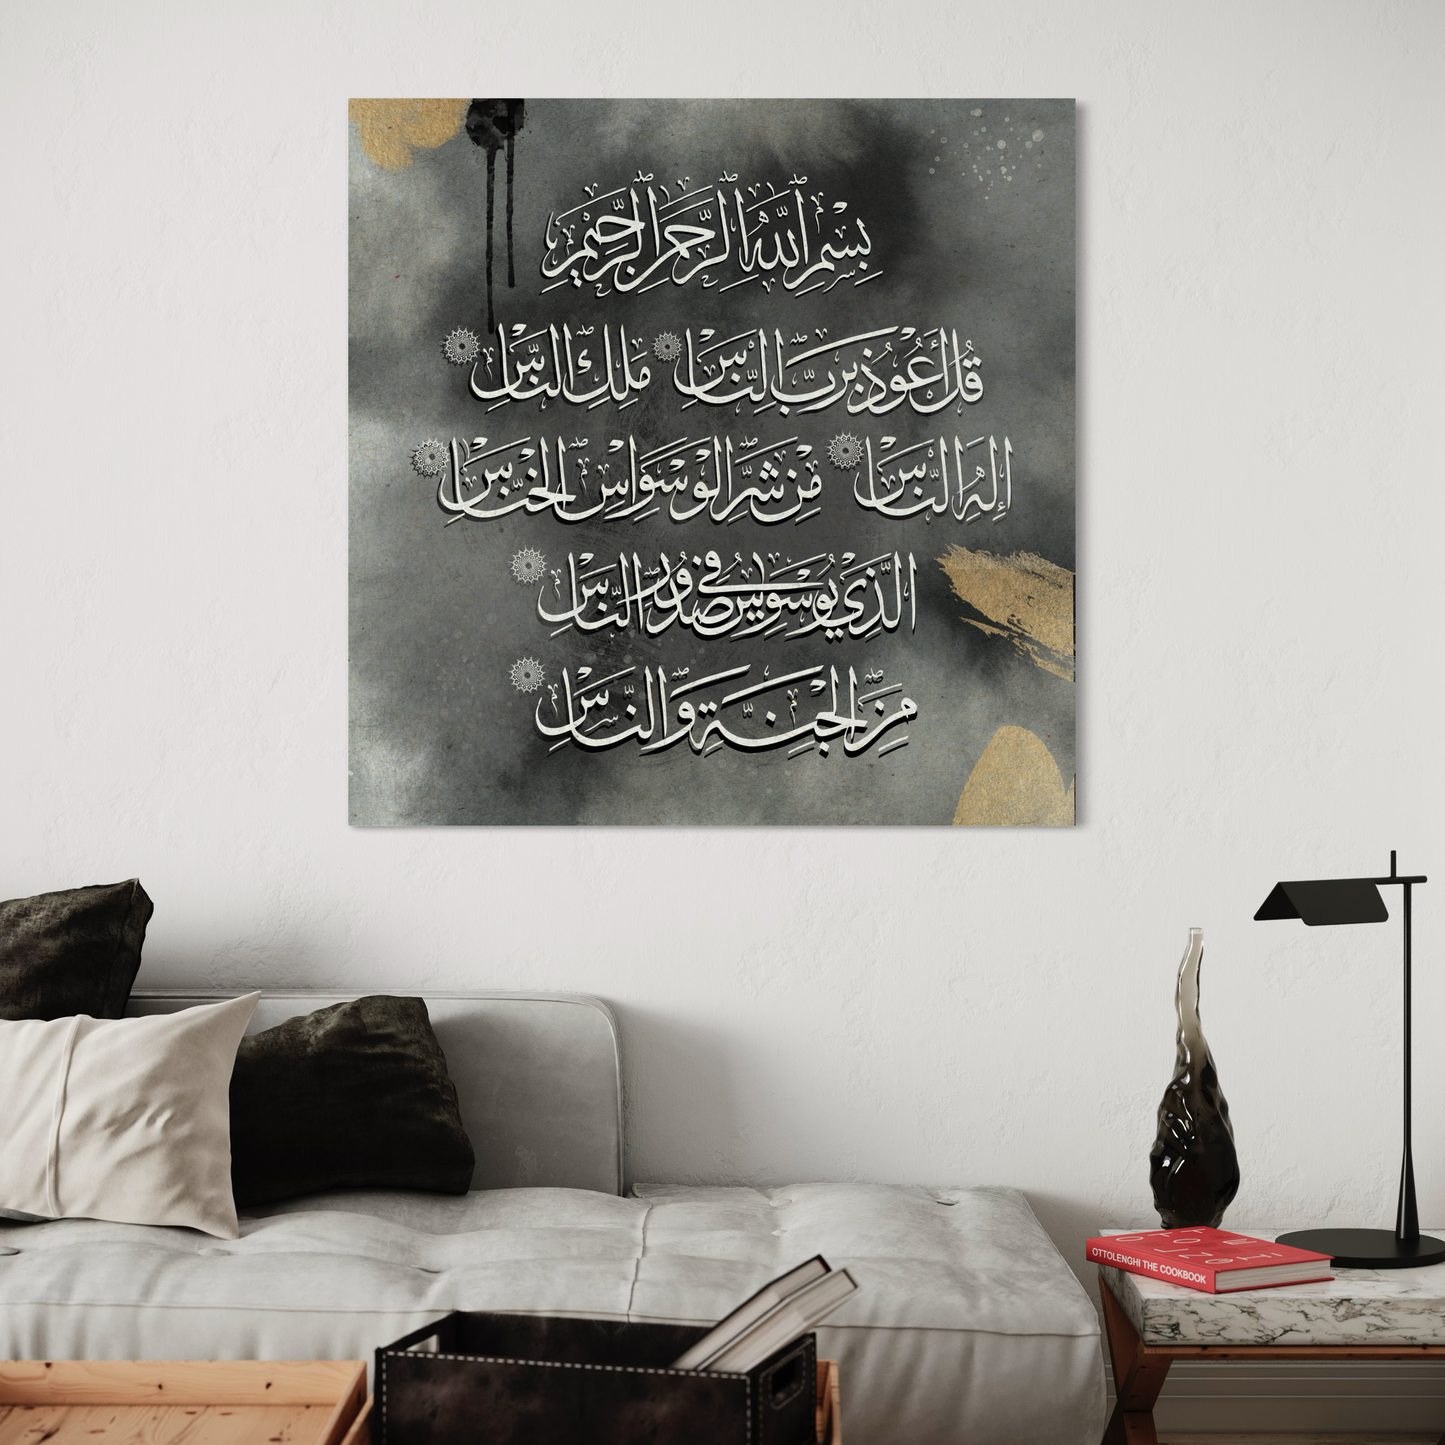 بِسْمِ ٱللَّهِ ٱلرَّحْمَٰنِ ٱلرَّحِيمِ
قُلْ أَعُوذُ بِرَبِّ ٱلنَّاسِ مَلِكِ ٱلنَّاسِ
إِلَٰهِ ٱلنَّاسِ مِن شَرِّ ٱلْوَسْوَاسِ ٱلْخَنَّاسِ
ٱلَّذِي يُوَسْوِسُ فِي صُدُورِ ٱلنَّاسِ
مِنَ ٱلْجِنَّةِ وَٱلنَّاسِ
OTTOLENGHI THE COOKBOOK